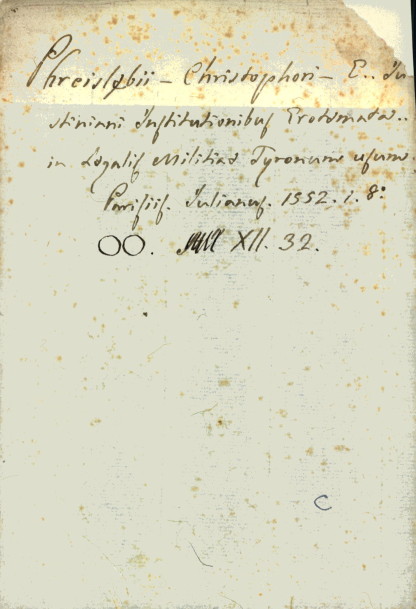 Phreislybii - Christophori - E.. Ju
stiniani Institutionibus Erotemata..
in Legalis Militiae Tyronum usum.
Parisiis. Julianus. 1552. i. 8°
OO. XII. 32.
C